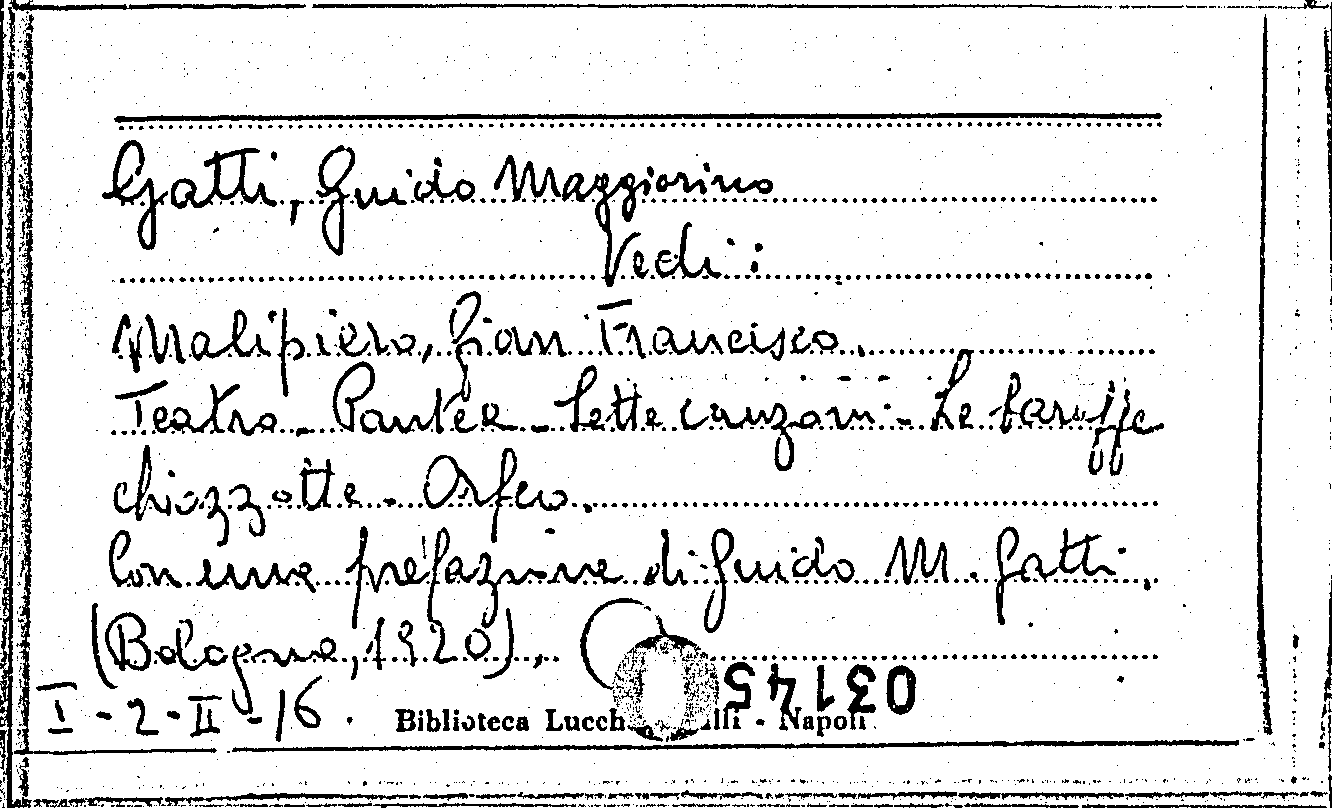 Gatti, Guido Maggiorino
Vedi:
Malipiero, Gian Francesco.
Teatro - Pantea - Sette canzoni - Le baruffe
chiozzotte - Orfeo.
Con una prefazione di Guido M. Gatti.
(Bologna, 1920).
03145
I-2-II-16.
Biblioteca Lucch lli - Napoli